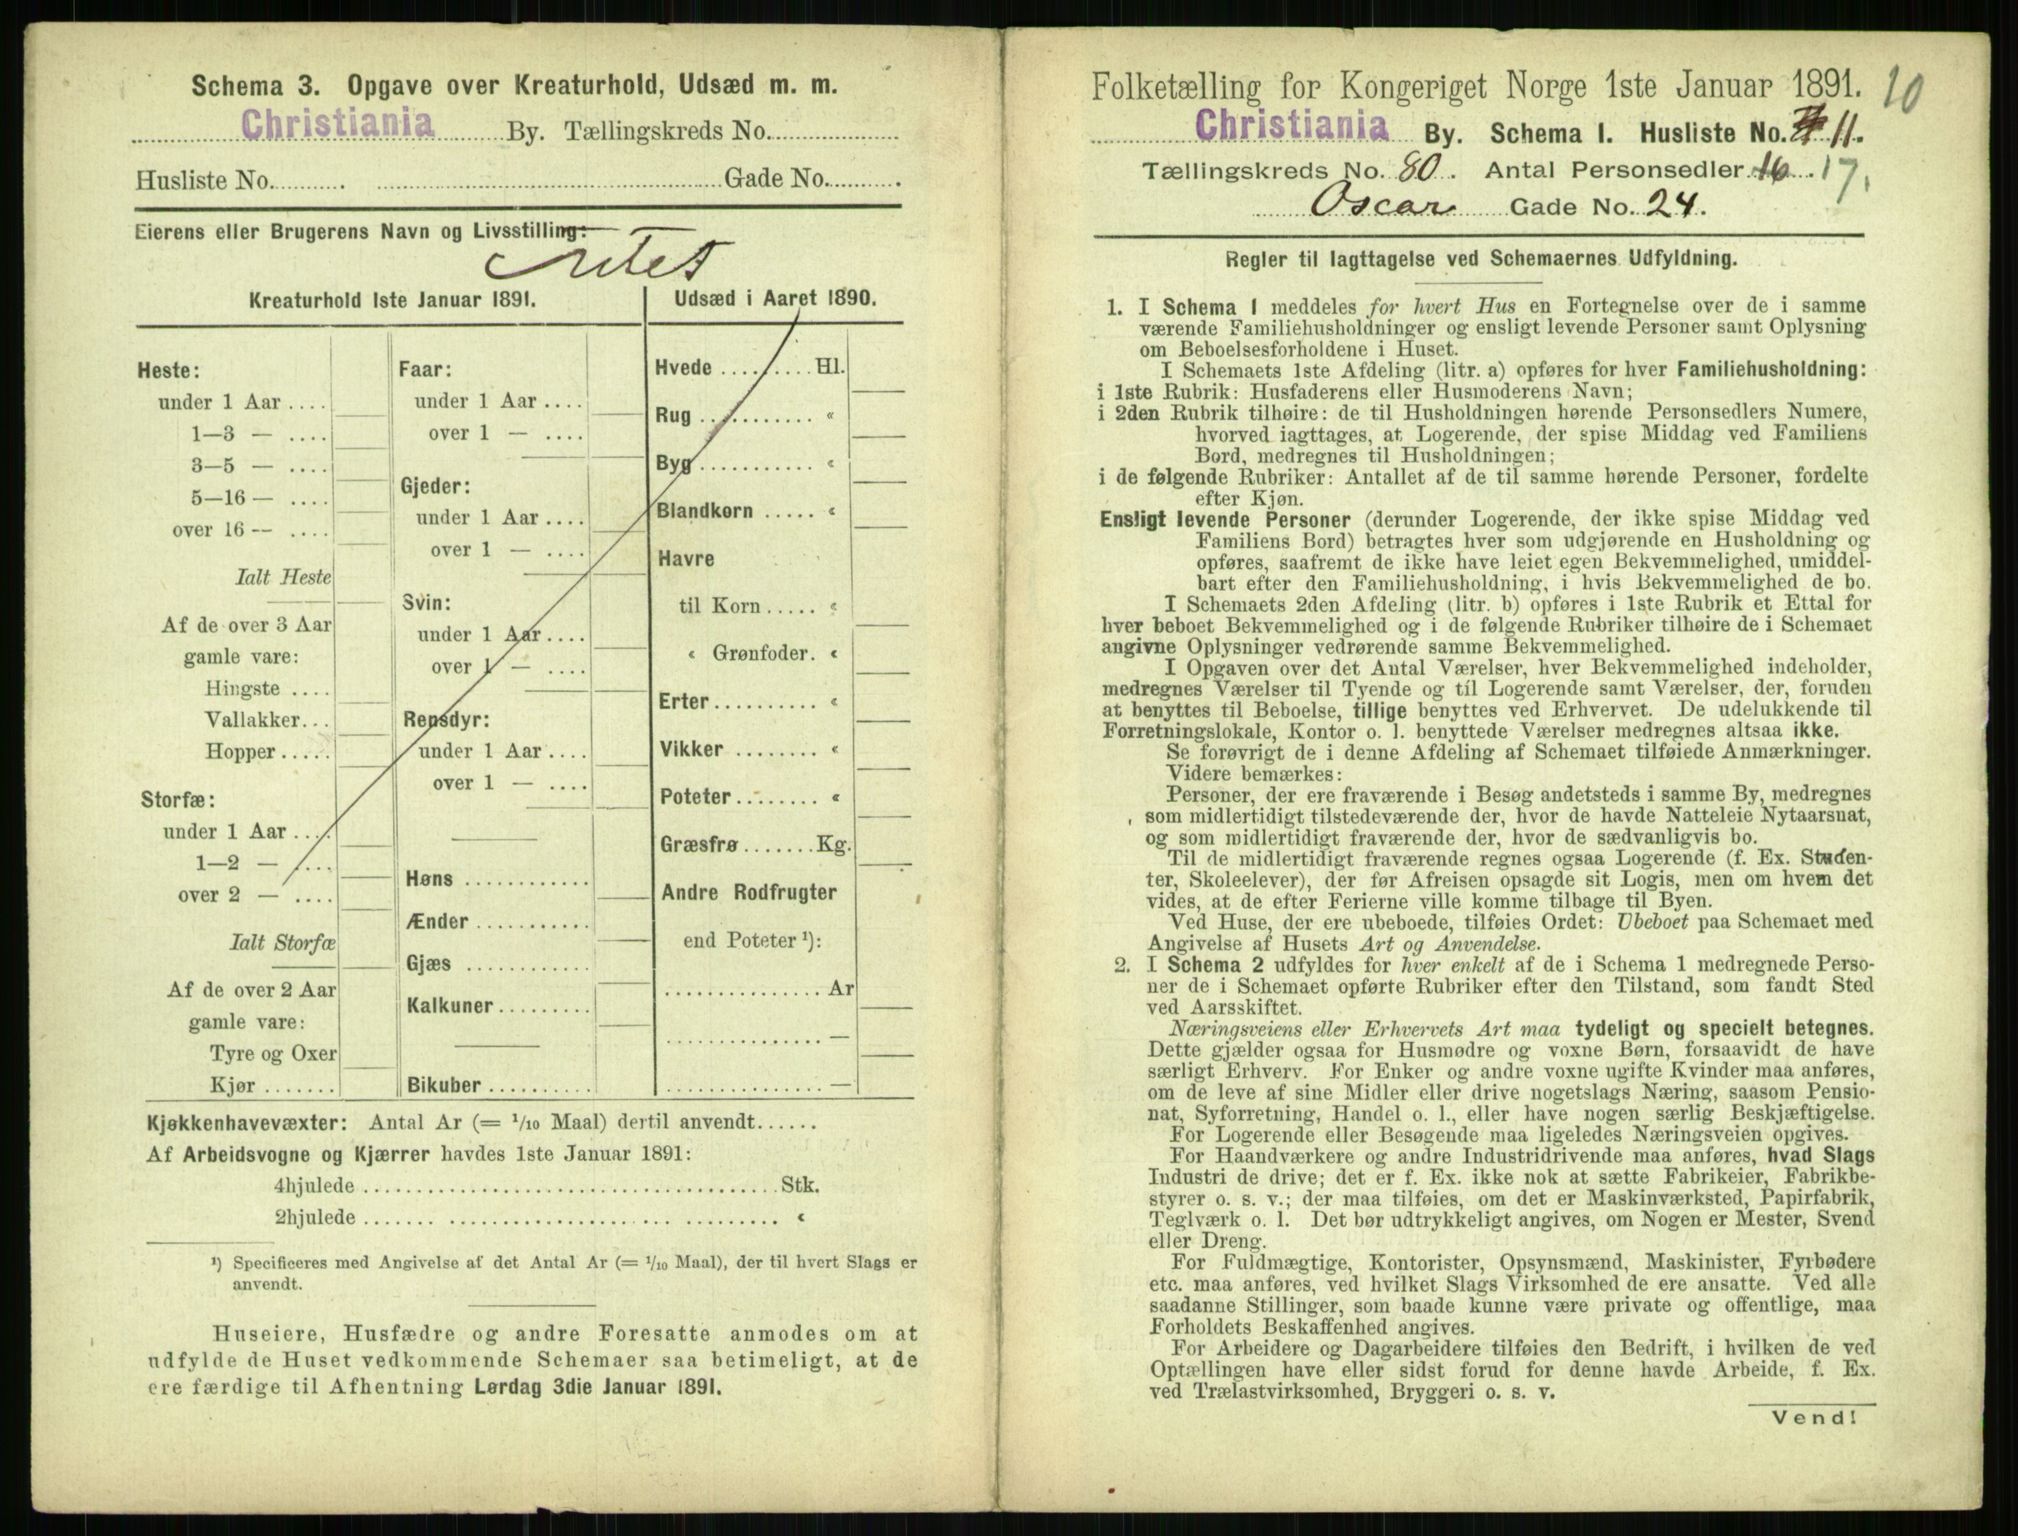 Schema 3. Opgave over Kreaturhold, Udsæd m. m.
Christiania By. Tællingskreds No.
Husliste No. Gade No.
Eierens eller Brugerens Navn og Livsstilling:
Intet
Kreaturhold 1ste Januar 1891.
Heste:
under 1 Aar ....
1—3 — ....
3—5 — ....
5—16 — ....
over 16 — ....
Ialt Heste
Af de over 3 Aar
gamle vare:
Hingste ....
Vallakker...
Hopper .....
Storfæ:
under 1 Aar ....
1—2 — ....
over 2 — ....
Ialt Storfæ
Af de over 2 Aar
gamle vare:
Tyre og Oxer
Kjør .......
Faar:
under 1 Aar ....
over 1 — ....
Gjeder:
under 1 Aar ....
over 1 — ....
Svin:
under 1 Aar ....
over 1 — ....
Rensdyr:
under 1 Aar ....
over 1 — ....
Høns ............
Ænder ...........
Gjæs ............
Kalkuner .........
Bikuber ..........
Udsæd i Aaret 1890.
Hvede ......... Hl.
Rug ........... «
Byg ........... «
Blandkorn ..... «
Havre
til Korn ..... «
« Grønfoder. «
Erter .......... «
Vikker ........ «
Poteter ........ «
Græsfrø ....... Kg.
Andre Rodfrugter
end Poteter ¹):
............... Ar
............... —
............... —
Kjøkkenhavevæxter: Antal Ar (= 1/10 Maal) dertil anvendt......
Af Arbeidsvogne og Kjærrer havdes 1ste Januar 1891:
4hjulede ........................................ Stk.
2hjulede ........................................ «
¹) Specificeres med Angivelse af det Antal Ar (= 1/10 Maal), der til hvert Slags er
anvendt.
Huseiere, Husfædre og andre Foresatte anmodes om at
udfylde de Huset vedkommende Schemaer saa betimeligt, at de
ere færdige til Afhentning Lørdag 3die Januar 1891.
Folketælling for Kongeriget Norge 1ste Januar 1891. 10
Christiania By. Schema I. Husliste No. 11.
Tællingskreds No. 80. Antal Personsedler 16. 17.
Oscar Gade No. 24.
Regler til Iagttagelse ved Schemaernes Udfyldning.
1. I Schema 1 meddeles for hvert Hus en Fortegnelse over de i samme
værende Familiehusholdninger og ensligt levende Personer samt Oplysning
om Beboelsesforholdene i Huset.
I Schemaets 1ste Afdeling (litr. a) opføres for hver Familiehusholdning:
i 1ste Rubrik: Husfaderens eller Husmoderens Navn;
i 2den Rubrik tilhøire: de til Husholdningen hørende Personsedlers Numere,
hvorved iagttages, at Logerende, der spise Middag ved Familiens
Bord, medregnes til Husholdningen;
i de følgende Rubriker: Antallet af de til samme hørende Personer, fordelte
efter Kjøn.
Ensligt levende Personer (derunder Logerende, der ikke spise Middag ved
Familiens Bord) betragtes hver som udgjørende en Husholdning og
opføres, saafremt de ikke have leiet egen Bekvemmelighed, umiddel-
bart efter den Familiehusholdning, i hvis Bekvemmelighed de bo.
I Schemaets 2den Afdeling (litr. b) opføres i 1ste Rubrik et Ettal for
hver beboet Bekvemmelighed og i de følgende Rubriker tilhøire de i Schemaet
angivne Oplysninger vedrørende samme Bekvemmelighed.
I Opgaven over det Antal Værelser, hver Bekvemmelighed indeholder,
medregnes Værelser til Tyende og til Logerende samt Værelser, der, foruden
at benyttes til Beboelse, tillige benyttes ved Erhvervet. De udelukkende til
Forretningslokale, Kontor o. l. benyttede Værelser medregnes altsaa ikke.
Se forøvrigt de i denne Afdeling af Schemaet tilføiede Anmærkninger.
Videre bemærkes:
Personer, der ere fraværende i Besøg andetsteds i samme By, medregnes
som midlertidigt tilstedeværende der, hvor de havde Natteleie Nytaarsnat,
og som midlertidigt fraværende der, hvor de sædvanligvis bo.
Til de midlertidigt fraværende regnes ogsaa Logerende (f. Ex. Studen-
ter, Skoleelever), der før Afreisen opsagde sit Logis, men om hvem det
vides, at de efter Ferierne ville komme tilbage til Byen.
Ved Huse, der ere ubeboede, tilføies Ordet: Ubeboet paa Schemaet med
Angivelse af Husets Art og Anvendelse.
2. I Schema 2 udfyldes for hver enkelt af de i Schema 1 medregnede Perso-
ner de i Schemaet opførte Rubriker efter den Tilstand, som fandt Sted
ved Aarsskiftet.
Næringsveiens eller Erhvervets Art maa tydeligt og specielt betegnes.
Dette gjælder ogsaa for Husmødre og voxne Børn, forsaavidt de have
særligt Erhverv. For Enker og andre voxne ugifte Kvinder maa anføres,
om de leve af sine Midler eller drive nogetslags Næring, saasom Pensio-
nat, Syforretning, Handel o. l., eller have nogen særlig Beskjæftigelse.
For Logerende eller Besøgende maa ligeledes Næringsveien opgives.
For Haandværkere og andre Industridrivende maa anføres, hvad Slags
Industri de drive; det er f. Ex. ikke nok at sætte Fabrikeier, Fabrikbe-
styrer o. s. v.; der maa tilføies, om det er Maskinværksted, Papirfabrik,
Teglværk o. l. Det bør udtrykkeligt angives, om Nogen er Mester, Svend
eller Dreng.
For Fuldmægtige, Kontorister, Opsynsmænd, Maskinister, Fyrbødere
etc. maa anføres, ved hvilket Slags Virksomhed de ere ansatte. Ved alle
saadanne Stillinger, som baade kunne være private og offentlige, maa
Forholdets Beskaffenhed angives.
For Arbeidere og Dagarbeidere tilføies den Bedrift, i hvilken de ved
Optællingen have eller sidst forud for denne havde Arbeide, f. Ex.
ved Trælastvirksomhed, Bryggeri o. s. v.
Vend!